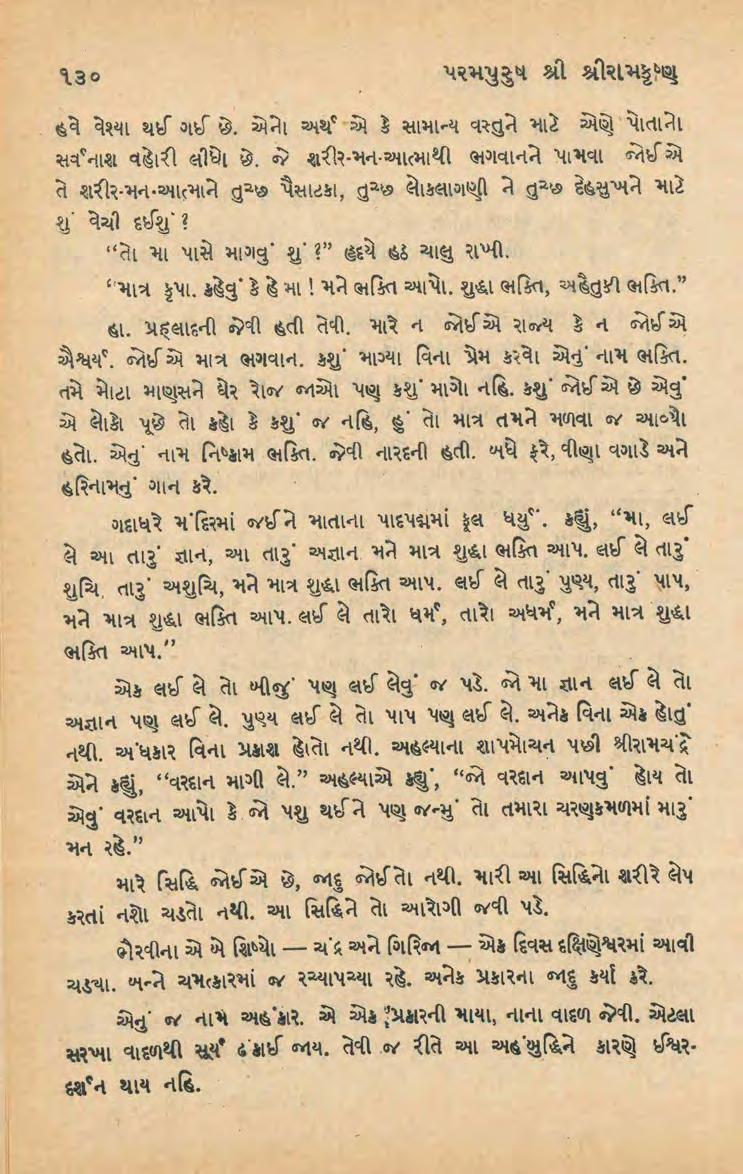 ૧૩૦ પરમપુરુષ શ્રી શ્રીરામકૃષ્ણ
હવે વેશ્યા થઈ ગઈ છે. એનો અર્થ એ કે સામાન્ય વસ્તુને માટે એણે પોતાનો
સર્વનાશ વહોરી લીધો છે. જે શરીર-મન-આત્માથી ભગવાનને પામવા જોઈએ
તે શરીર-મન-આત્માને તુચ્છ પૈસાટકા, તુચ્છ લોકલાગણી ને તુચ્છ દેહસુખને માટે
શું વેચી દઈશું ?
“તો મા પાસે માગવું શું ?” હૃદયે હઠ ચાલુ રાખી.
“માત્ર કૃપા. કહેવું કે હે મા ! મને ભક્તિ આપો. શુદ્ધા ભક્તિ, અહૈતુકી ભક્તિ.”
હા. પ્રહ્‌લાદની જેવી હતી તેવી. મારે ન જોઈએ રાજ્ય કે ન જોઈએ
ઐશ્વર્ય. જોઈએ માત્ર ભગવાન. કશું માગ્યા વિના પ્રેમ કરવો એનું નામ ભક્તિ.
તમે મોટા માણસને ઘેર રોજ જાઓ પણ કશું માગો નહિ. કશું જોઈએ છે એવું
એ લોકો પૂછે તો કહો કે કશું જ નહિ, હું તો માત્ર તમને મળવા જ આવ્યો
હતો. એનું નામ નિષ્કામ ભક્તિ. જેવી નારદની હતી. બધે ફરે, વીણા વગાડે અને
હરિનામનું ગાન કરે.
ગદાધરે મંદિરમાં જઈને માતાના પાદપદ્મમાં ફૂલ ધર્યું. કહ્યું, “મા, લઈ
લે આ તારું જ્ઞાન, આ તારું અજ્ઞાન મને માત્ર શુદ્ધા ભક્તિ આપ. લઈ લે તારું
શુચિ, તારું અશુચિ, મને માત્ર શુદ્ધા ભક્તિ આપ. લઈ લે તારું પુણ્ય, તારું પાપ,
મને માત્ર શુદ્ધા ભક્તિ આપ. લઈ લે તારો ધર્મ, તારો અધર્મ, મને માત્ર શુદ્ધા
ભક્તિ આપ.”
એક લઈ લે તો બીજું પણ લઈ લેવું જ પડે. જો મા જ્ઞાન લઈ લે તો
અજ્ઞાન પણ લઈ લે. પુણ્ય લઈ લે તો પાપ પણ લઈ લે. અનેક વિના એક હોતું
નથી. અંધકાર વિના પ્રકાશ હોતો નથી. અહલ્યાના શાપમોચન પછી શ્રીરામચંદ્રે
એને કહ્યું, “વરદાન માગી લે.” અહલ્યાએ કહ્યું, “જો વરદાન આપવું હોય તો
એવું વરદાન આપો કે જો પશુ થઈને પણ જન્મું તો તમારા ચરણકમળમાં મારું
મન રહે.”
મારે સિદ્ધિ જોઈએ છે, જાદુ જોઈતો નથી. મારી આ સિદ્ધિનો શરીરે લેપ
કરતાં નશો ચડતો નથી. આ સિદ્ધિને તો આરોગી જવી પડે.
ભૈરવીના એ બે શિષ્યો — ચંદ્ર અને ગિરિજા — એક દિવસ દક્ષિણેશ્વરમાં આવી
ચડ્યા. બન્ને ચમત્કારમાં જ રચ્યાપચ્યા રહે. અનેક પ્રકારના જાદુ કર્યા કરે.
એનું જ નામ અહંકાર. એ એક પ્રકારની માયા, નાના વાદળ જેવી. એટલા
સરખા વાદળથી સૂર્ય ઢંકાઈ જાય. તેવી જ રીતે આ અહંબુદ્ધિને કારણે ઈશ્વર-
દર્શન થાય નહિ.